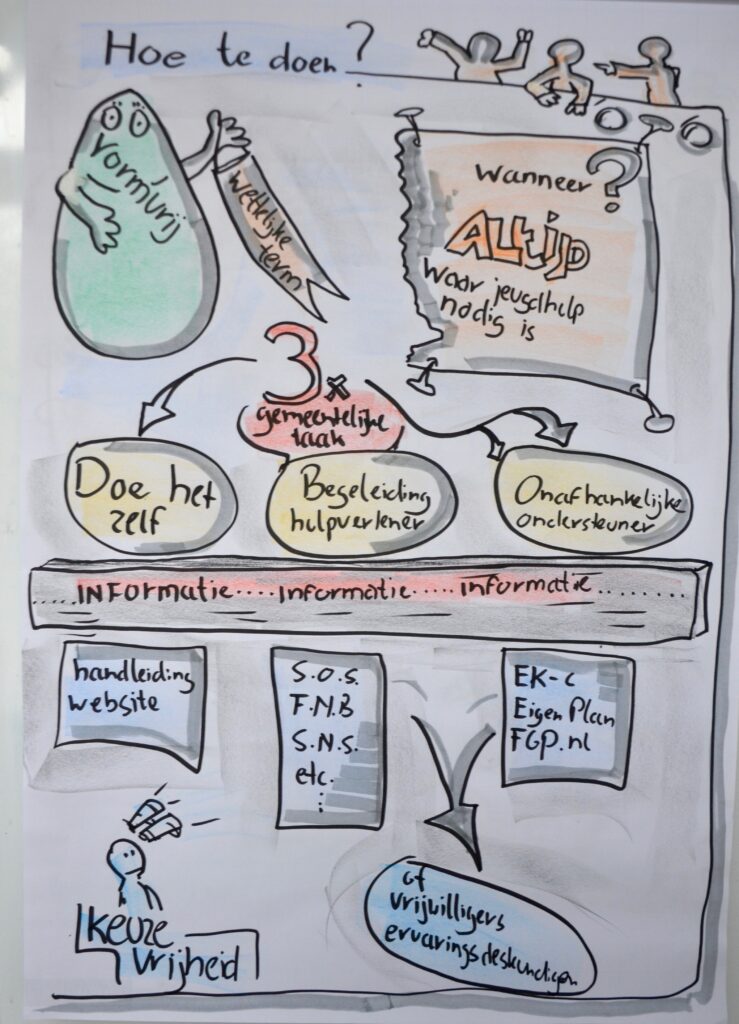 Hoe te doen?
vormvrij
wettelijke
term
Wanneer?
ALtijD
Waar jeugdhulp
nodig is
3x
gemeentelijke
taak
Doe het
zelf
Begeleiding
hulpverlener
Onafhankelijke
ondersteuner
.....INFormatie....Informatie.....informatie.......
handleiding
website
S.O.S.
F.N.B
S.N.S.
etc.
:
EK-C
Eigen Plan
FGP.nl
Keuze
Vrijheid
of
vrijwilligers
ervaringsdeskundigen